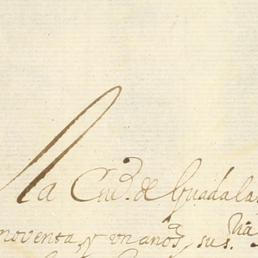 la Ciud. de Guadala
noventa y vn años sus.